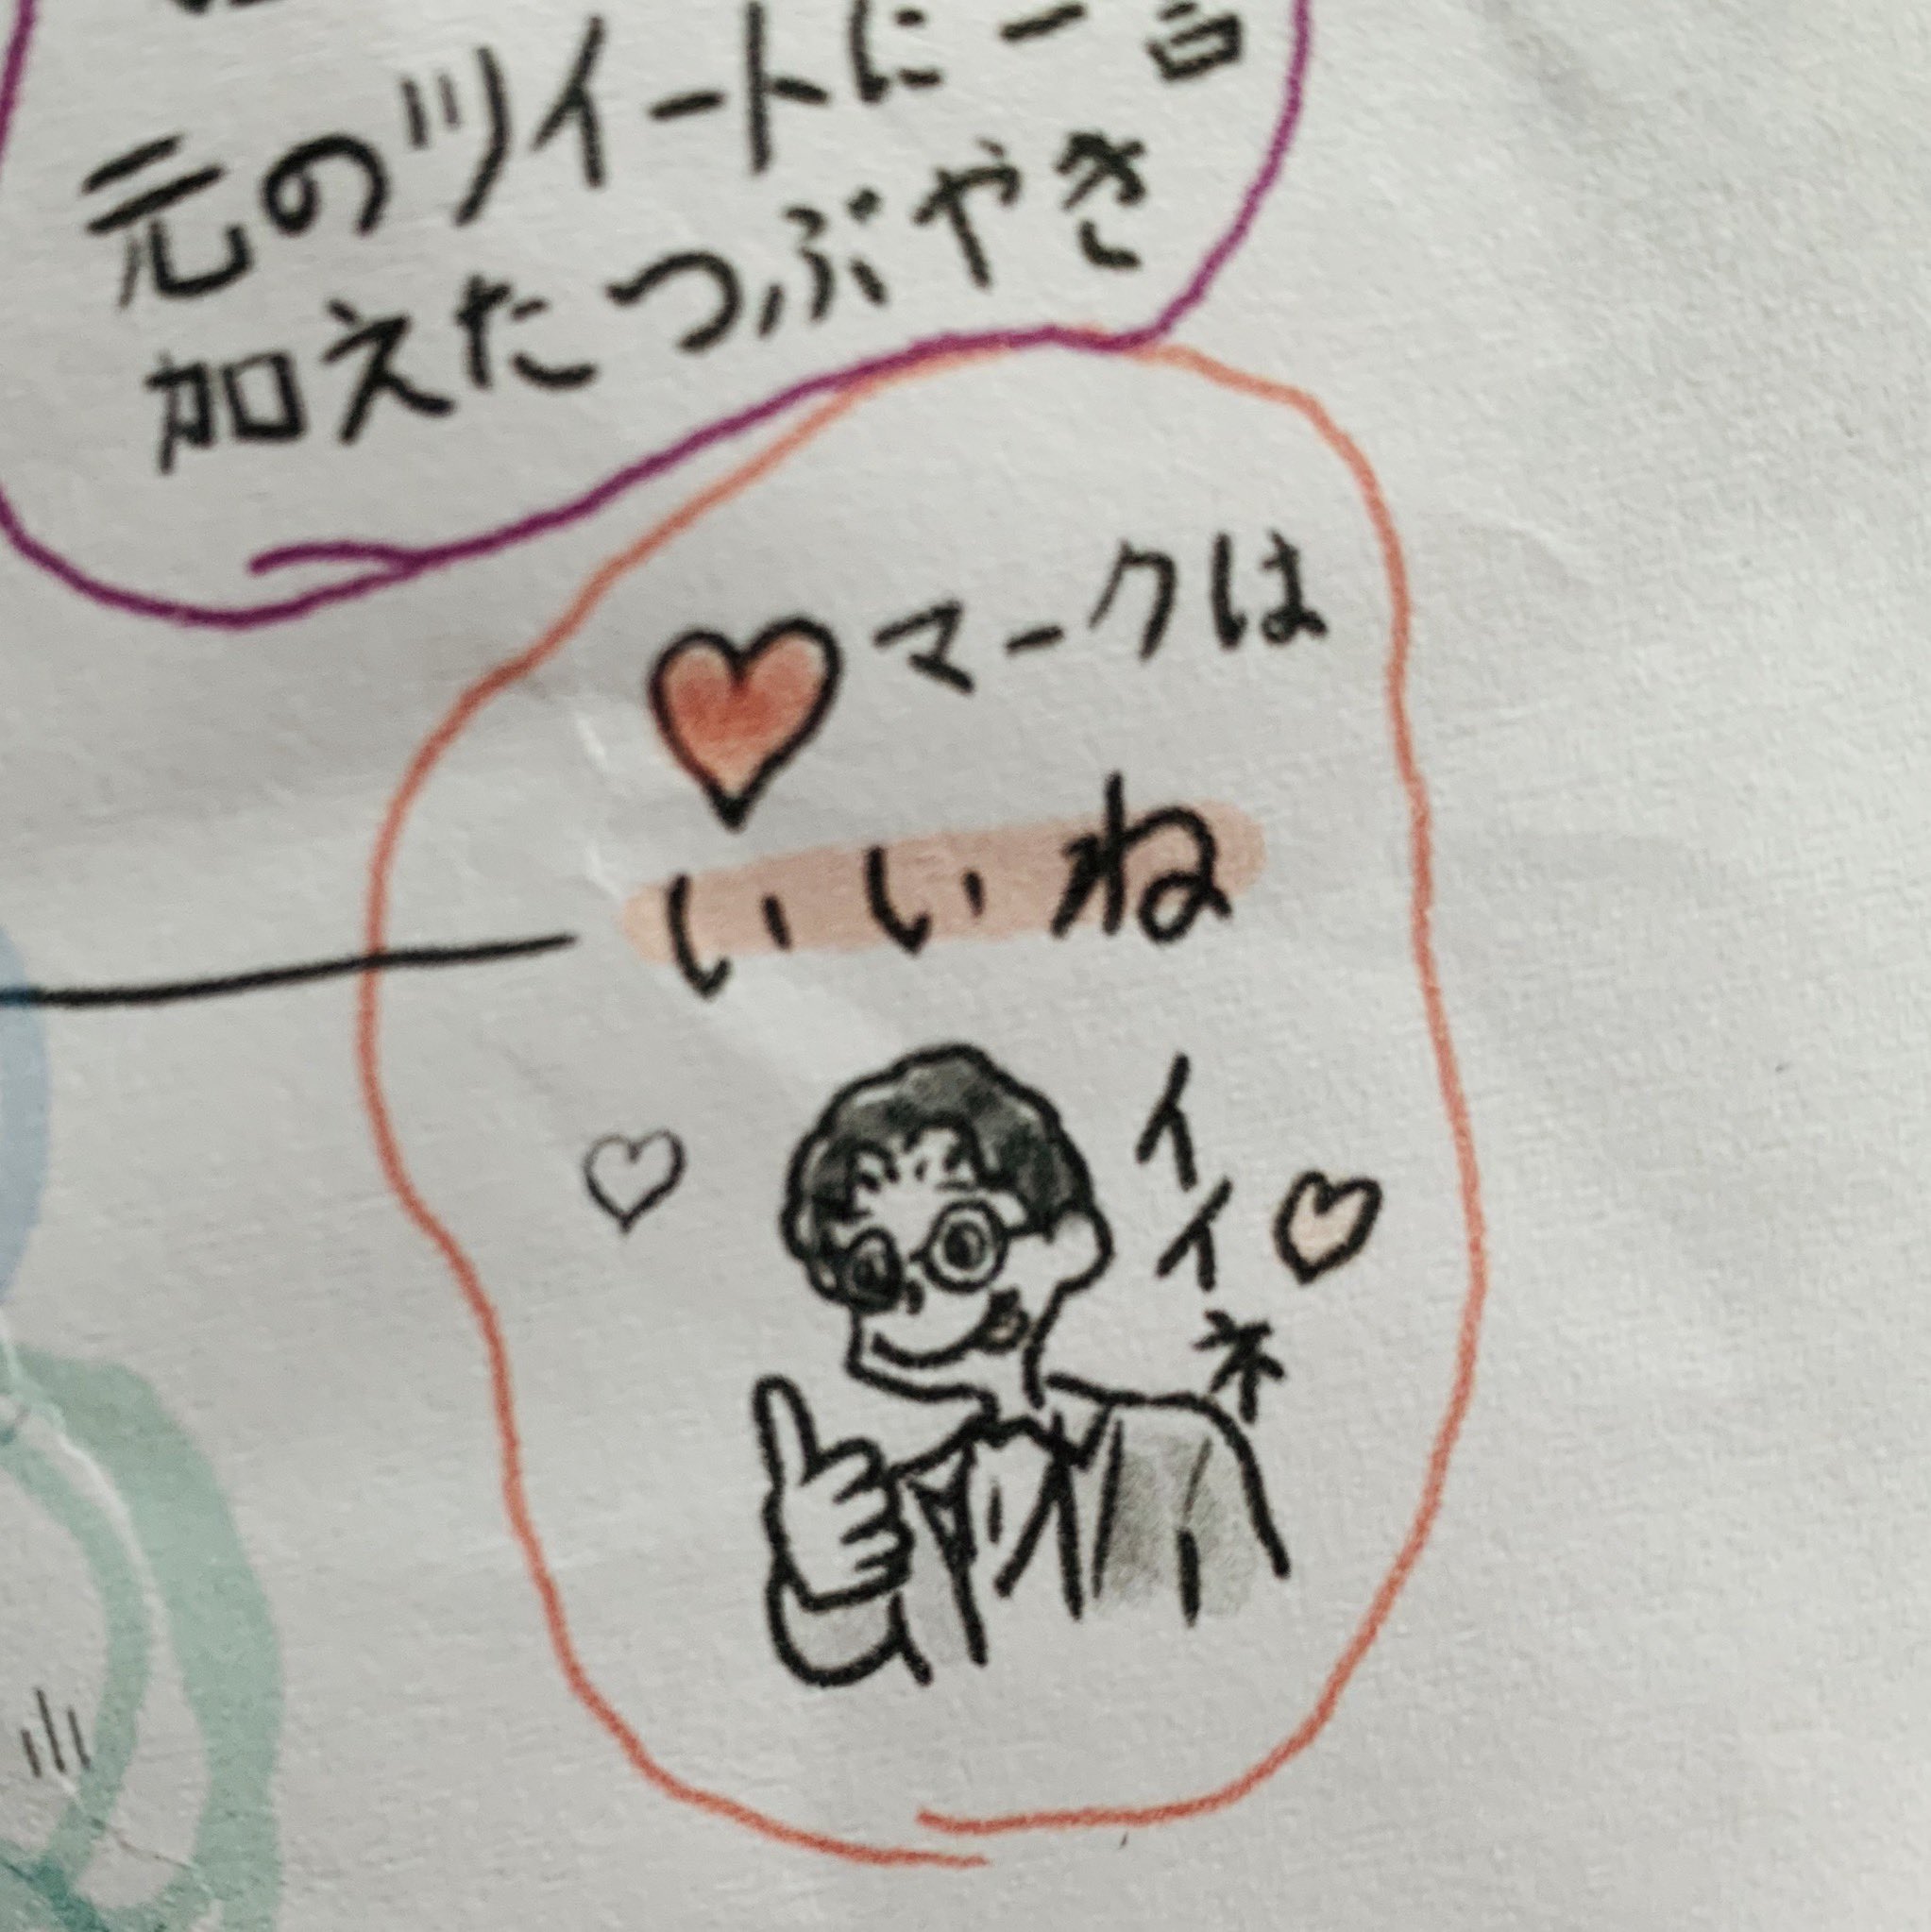 元のツイートに一言
加えたつぶやき
マークは
いいね
イイネ